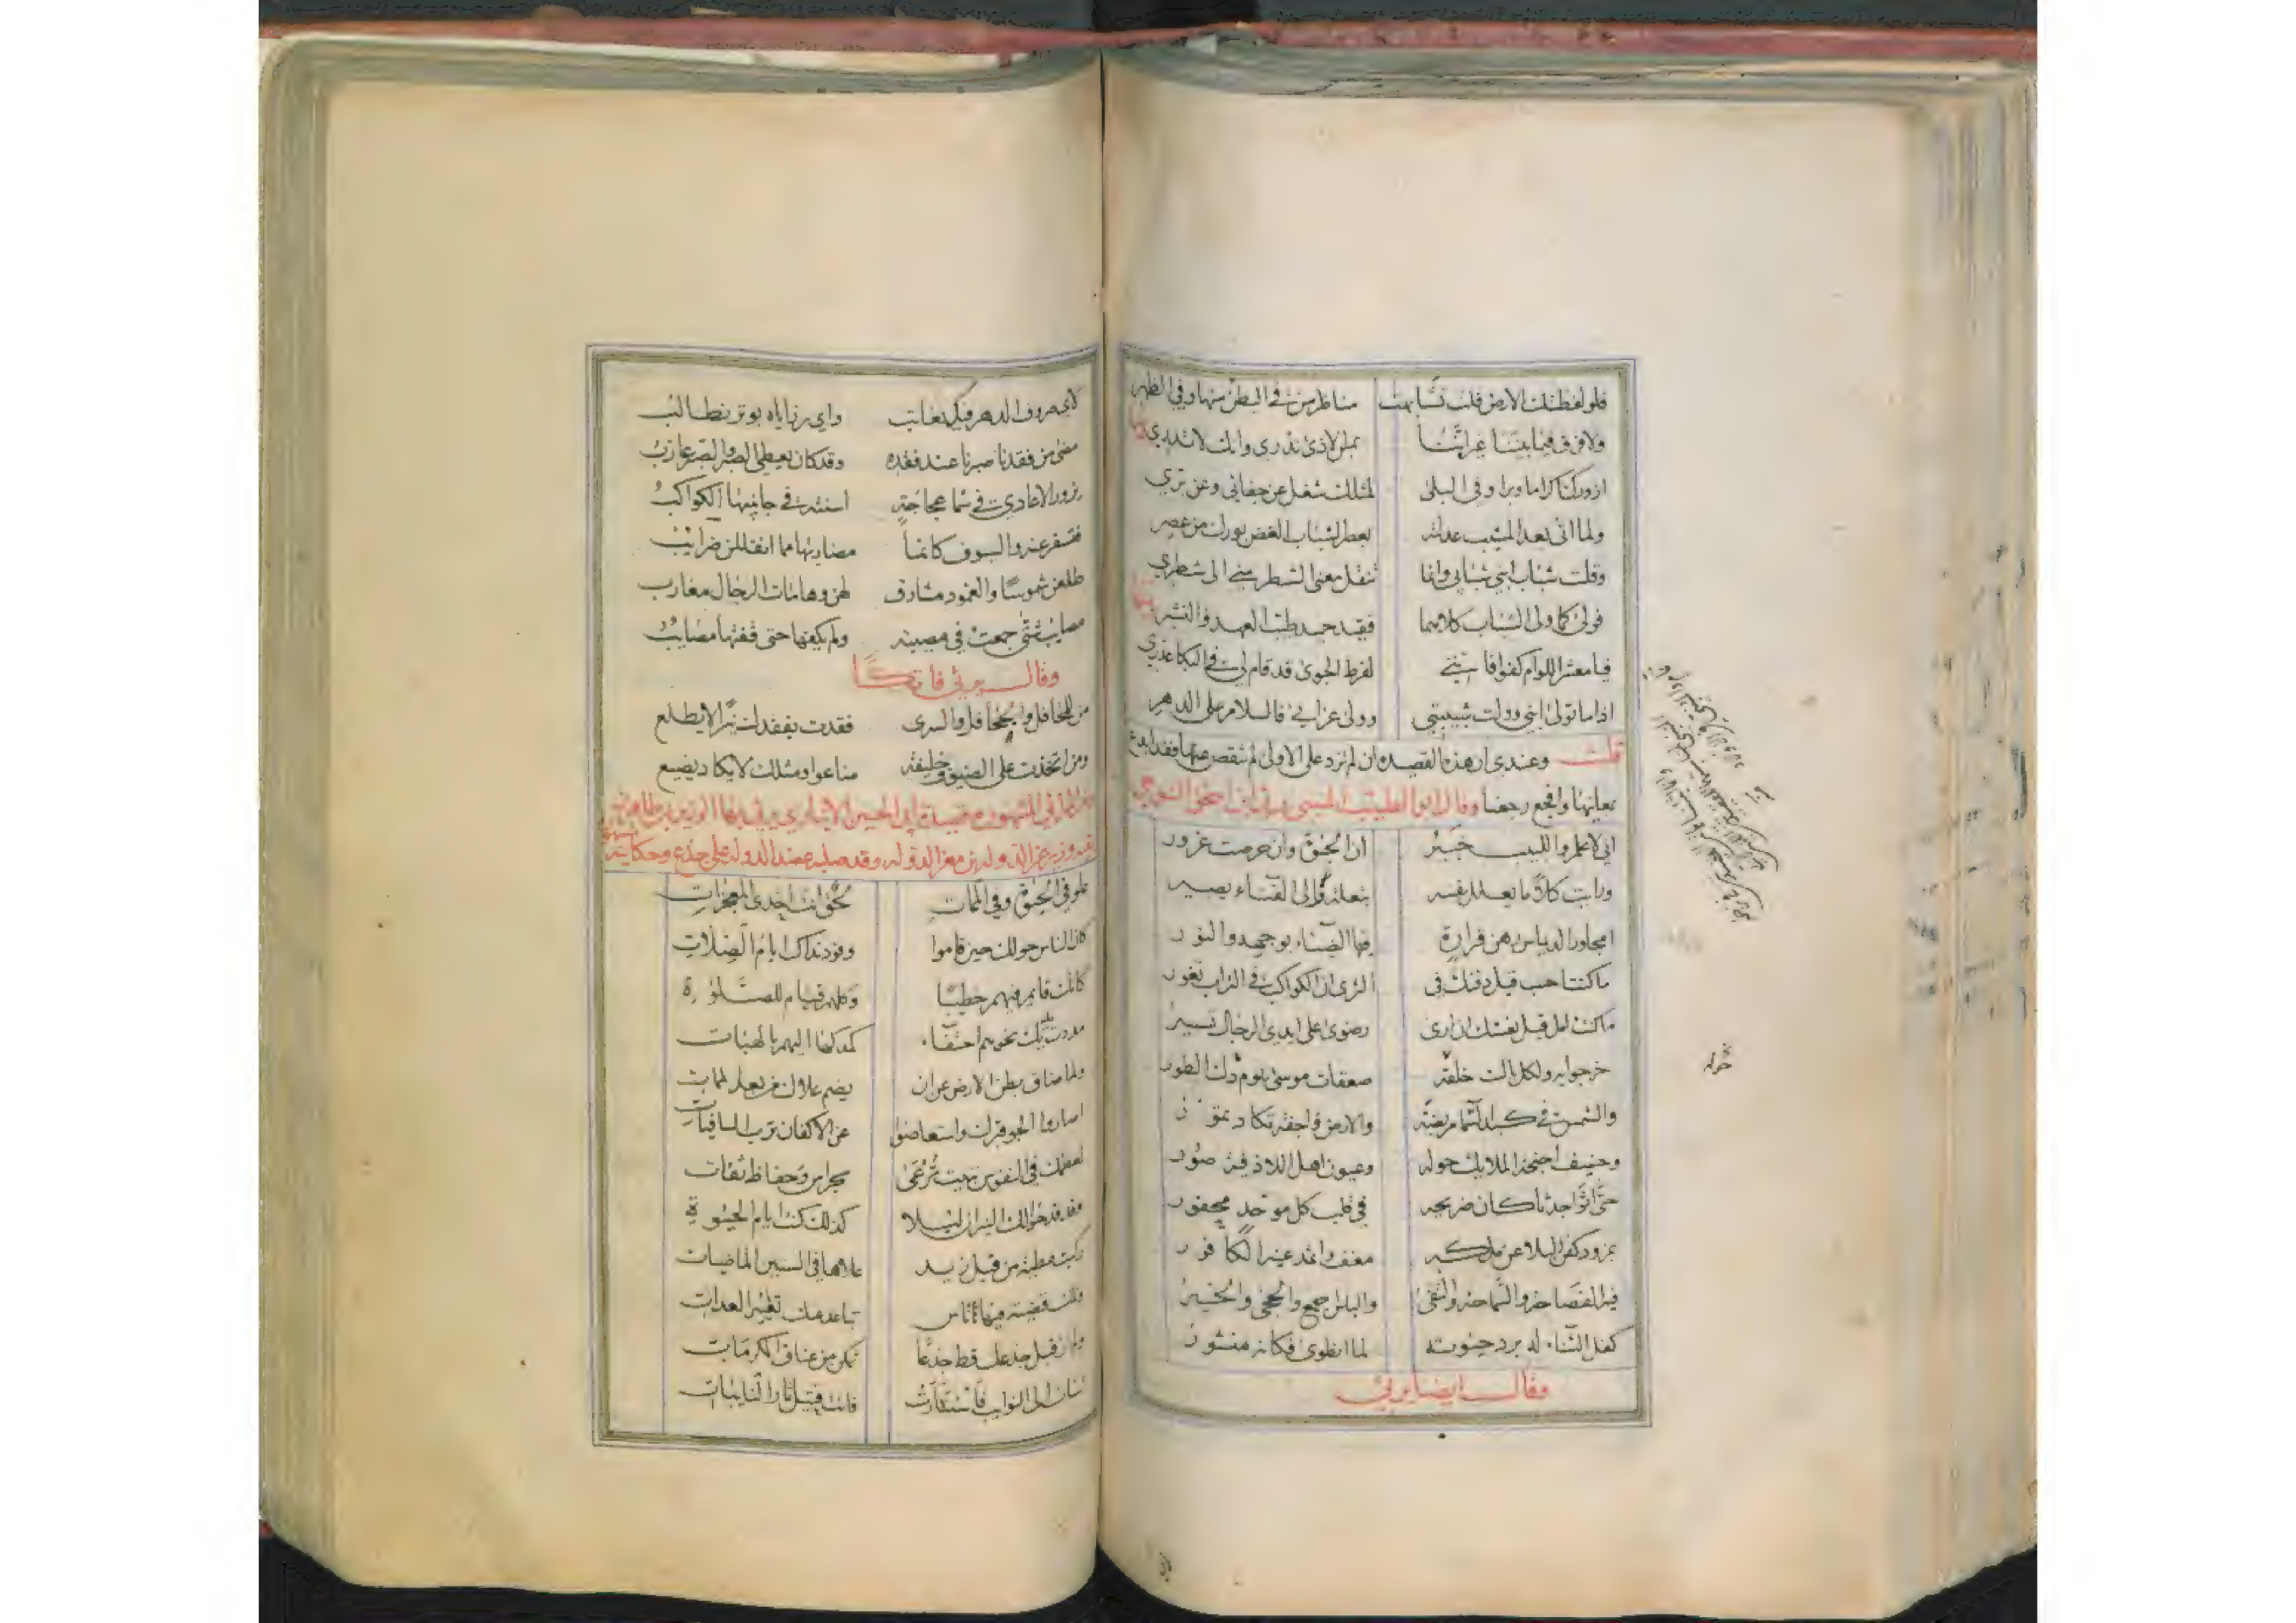 فلو لفظتك الارض قلت تشابهت مناظر من في البطن منها وفي الظهر
ولا فرق فيما بيننا غير اننا بمس الاذى ندري وانك لا تدري
ازورك اكراما وبرا وفي البلى لمثلك شغل عن حفاني وعن بري
ولما اتى بعد المشيب عدلته بعصر الشباب الغض بورك من عصر
وقلت شباب ابني شبابي وانما تنقل معنى الشطر مني الى شطري
فولى كما ولى الشباب كلاهما فقيد حميد طيب العهد والنشر
فيا معشر اللوام كفوا فانني لفرط الجوى قد قام لي في البكا عذري
اذا ما تولى ابني وولت شبيبتي وولى عزائي فالسلام على الدهر
قلت وعندي ان هذه القصيده ان لم تزد على الاولى لم تنقص عنها فقد ابدع
معانيها وافجع رجعنا وقال ابو الطيب المتنبي يرثي ابن اسحق التنوخي
اني لاعلم واللبيب خبير ان الحيوة وان حرصت غرور
ورايت كلا ما يعلل نفسه بتعلة والى الفناء يصير
امجاور الديماس رهن قرارة فيها الضياء بوجهه والنور
ما كنت احسب قبل دفنك في الثرى ان الكواكب في التراب تغور
ما كنت امل قبل نعشك ان ارى رضوى على ايدي الرجال تسير
خرجوا به ولكل باك خلفه صعقات موسى يوم دك الطور
والشمس في كبد السما مريضة والارض واجفة تكاد تمور
وحفيف اجنحة الملايك حوله وعيون اهل اللاذقية صور
حتى اتوا جدثا كان ضريحه في قلب كل موحد محفور
بمزود كفن البلا من ملكه مغف واثمد عينه الكافور
فيه الفصاحة والسماحة والتقى والباس اجمع والحجى والخير
كفل الثناء له برد حيوته لما انطوى فكانه منشور
وقال ايضا يرثي
لاي صروف الدهر فيك نعاتب واي رزاياه بوتر نطالب
مضى من فقدنا صبرنا عند فقده وقد كان يعطي الصبر والصبر عازب
يزور الاعادي في سما عجاجة اسنته في جانبيها الكواكب
فتسفر عنه والسيوف كانما مضاربها مما انفللن ضرايب
طلعن شموسا والغمود مشارق لهن وهامات الرجال مغارب
مصايب شتى جمعت في مصيبة ولم يكفها حتى قفتها مصايب
وقال يرثي فاتكا
من للمحافل والجحافل والسرى فقدت بفقدك نيرا لا يطلع
ومن اتخذت على الضيوف خليفة ضاعوا ومثلك لا يكاد يضيع
المراثي المشهوره قصيدة ابي الحسين الانباري يرثي بها الوزير ابا طاهر بن
بقيه وزير عز الدوله بن معز الدوله وقد صلبه عضد الدوله على جذع وحكايته
علو في الحيوة وفي الممات بحق انت احدى المعجزات
كان الناس حولك حين قاموا وفود نداك ايام الصلات
كانك قايم فيهم خطيبا وكلهم قيام للصلوة
مددت يديك نحوهم احتفاء كمدكها اليهم بالهبات
ولما ضاق بطن الارض عن ان يضم علاك من بعد الممات
اصاروا الجو قبرك واستعاضوا عن الاكفان ثوب السافيات
لعظمك في النفوس تبيت ترعى بحراس وحفاظ ثقات
وتوقد حولك النيران ليلا كذلك كنت ايام الحيوة
ركبت مطية من قبل زيد علاها في السنين الماضيات
وتلك قضية فيها اناس تباعد عنك تعيير العدات
ولم ار قبل جذعك قط جذعا تمكن من عناق المكرمات
اسات الى النوايب فاستثارت فانت قتيل ثار النايبات